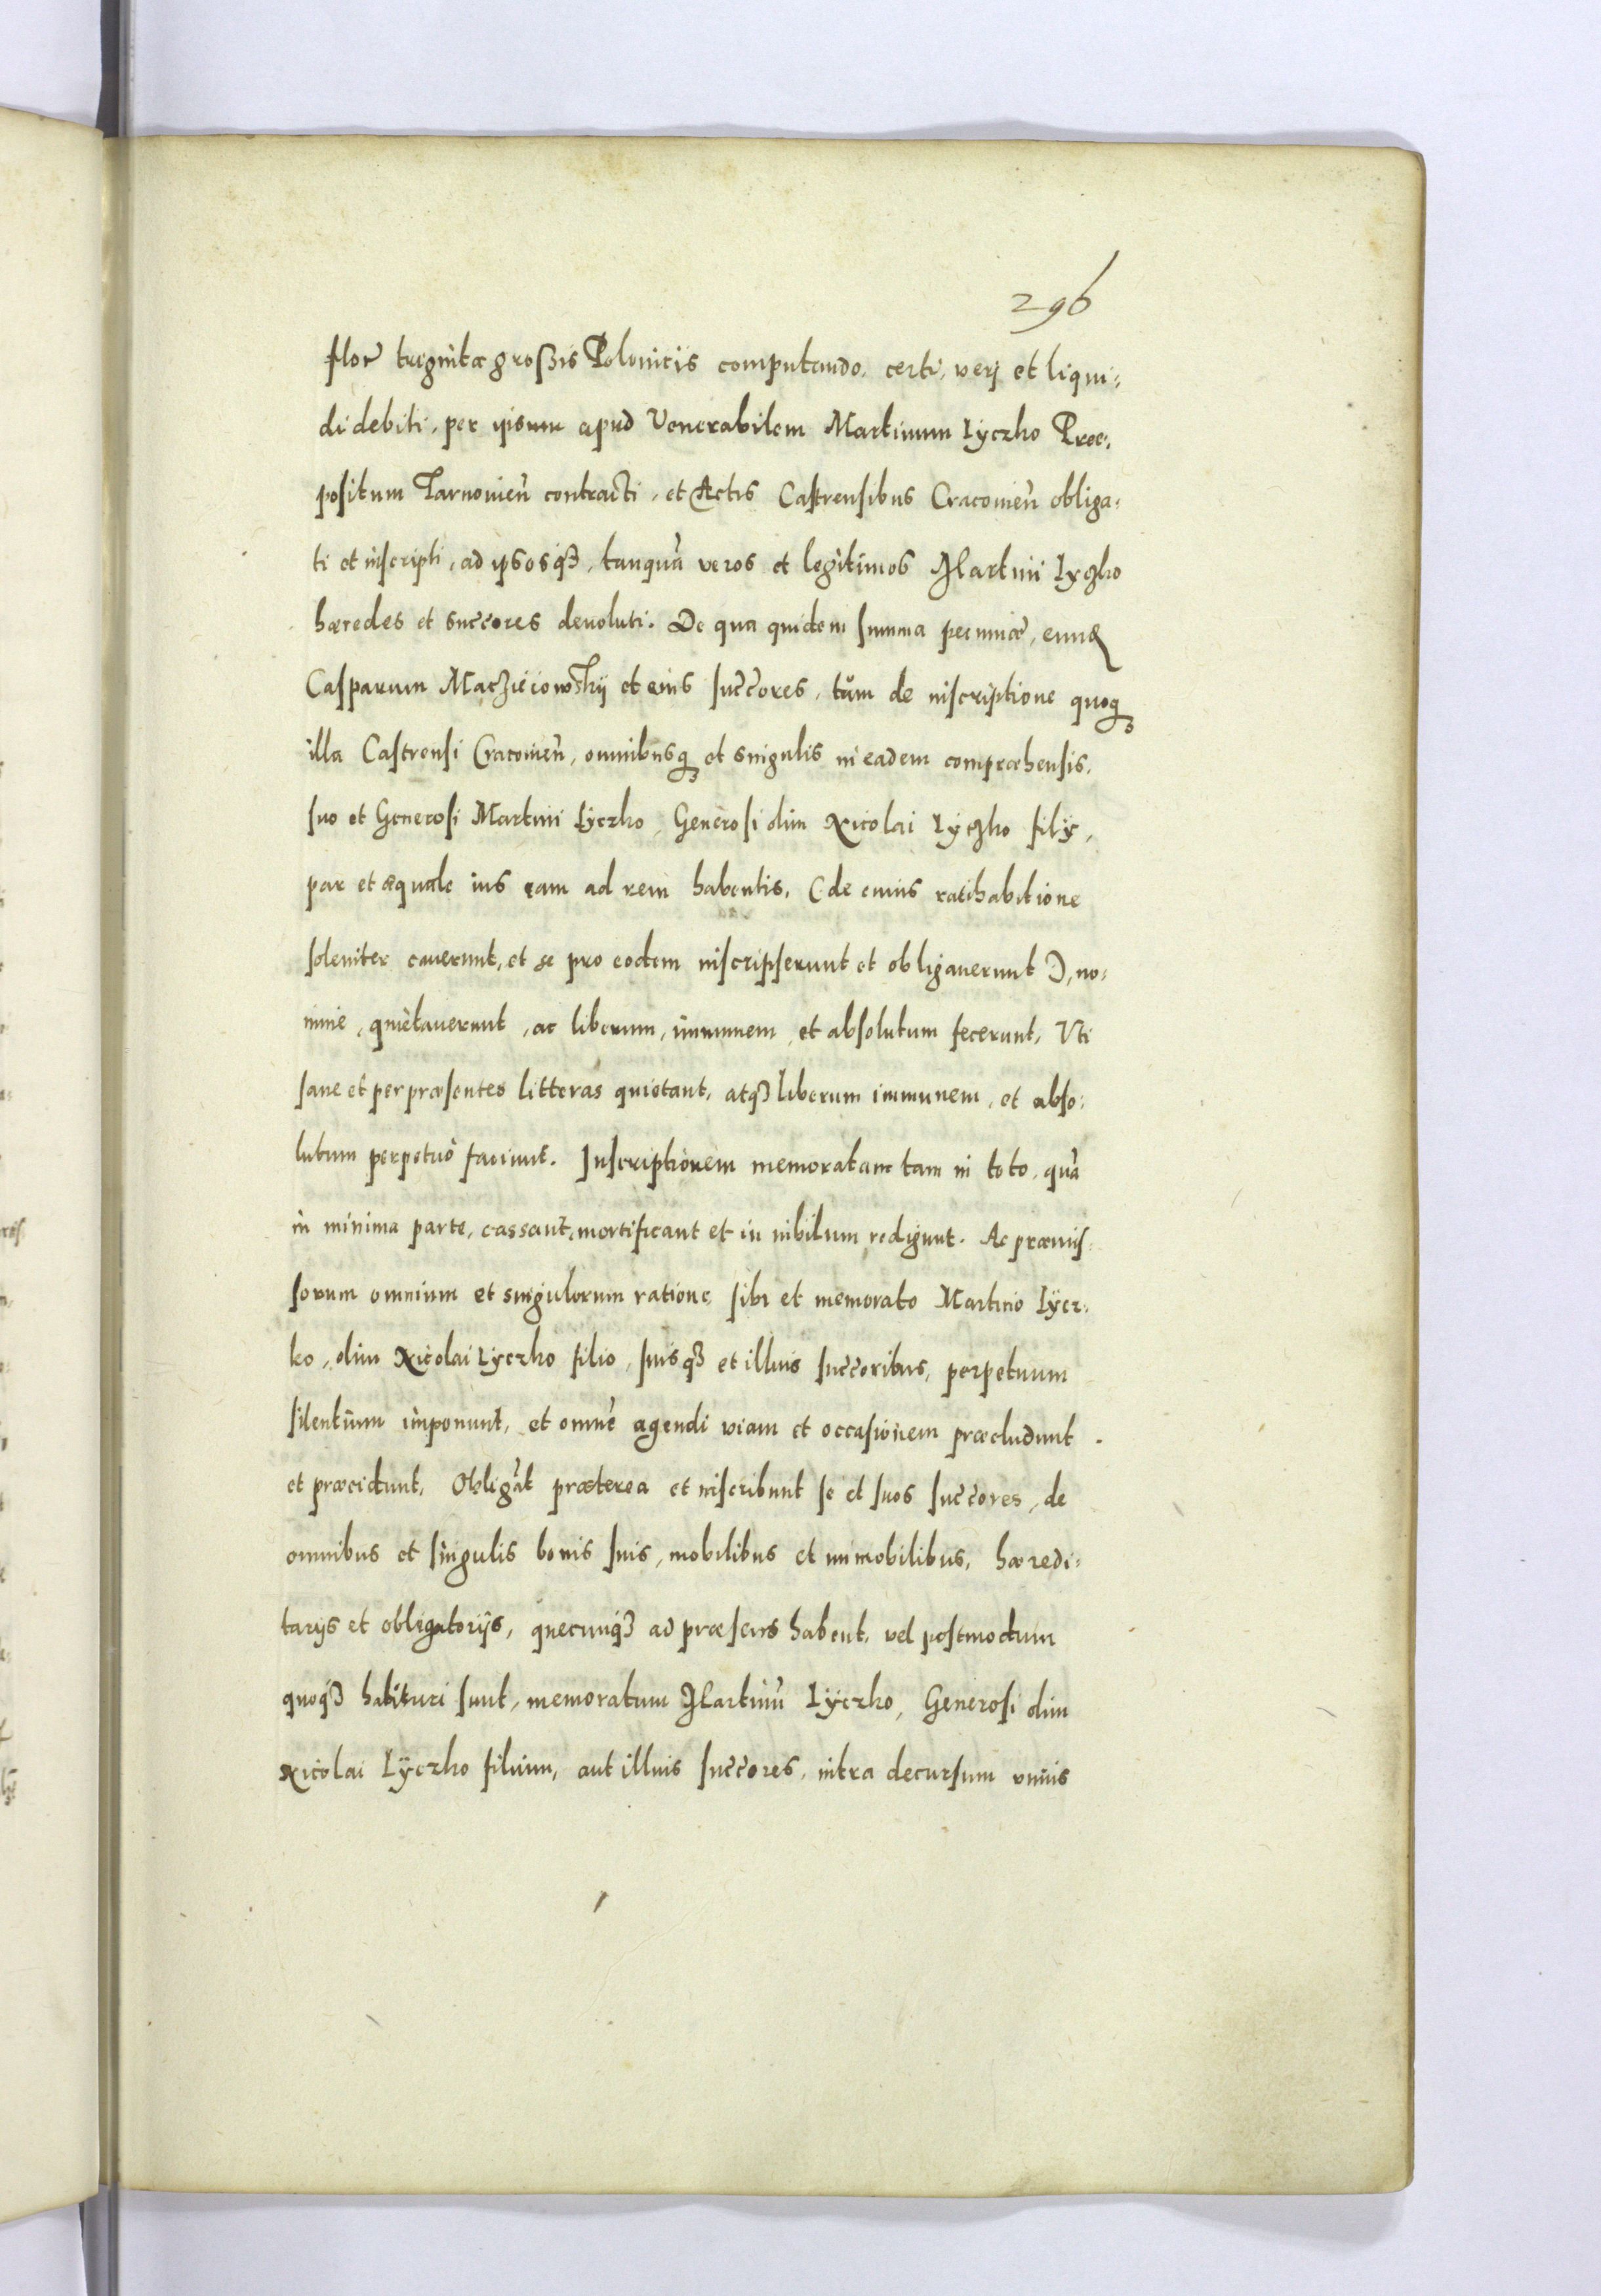 296
flor̃ triginta großis Polonicis computando, certi, verj et liqui:
di debiti, per ipsum apud Venerabilem Martinum Lyczko Præ,
positum Tarnovien̄ contracti, et Actis Castrensibus Cracovien̄ obliga:
ti et inscripti, ad ipsosq́ꝫ, tanquā veros et legitimos Martini Lyczko
hæredes et succ̄ores devoluti. De qua quidem summa pecuniæ, eundē
Casparum Macziëiowskij et eius succ̄ores, tŭm de inscriptione quoqꝫ
illa Castrensi Cracovien̄, omnibusqꝫ et singulis in eadem compræhensis,
suo et Generosi Martini Lÿczko, Generosi olim Nicolai Lyczko filÿ,
par et æquale ius eam ad rem habentis, (de cuius ratihabitione
soleniter caverunt, et se pro eodem inscripserunt et obligaverunt), no:
mine, quietaverunt, ac liberum, immunem, et absolutum fecerunt, Vti
sane et per præsentes litteras quietant, atq́ꝫ liberum immunem, et abso:
lutum perpetuò faciunt. Inscriptionem memoratam tam in toto, quā
in minima parte, cassant, mortificant et in nihilum redigunt. Ac præmis:
sorum omnium et singulorum ratione, sibi et memorato Martino Lÿcz:
ko, olim Nicolai Lyczko filio, suisq́ꝫ et illius succ̄oribus, perpetuum
silentium imponunt, et omnē agendi viam et occasionem præcludunt
et præcidunt, Obligāt præterea et inscribunt se et suos succ̄ores, de
omnibus et singulis bonis suis, mobilibus et immobilibus, hæredi:
tarijs et obligatorijs, quecunq́ꝫ ad præsens habent, vel postmodum
quoq́ꝫ habituri sunt, memoratum Martinū Lÿczko, Generosi olim
Nicolai Lÿczko filium, aut illius succ̄ores, intra decursum vnius